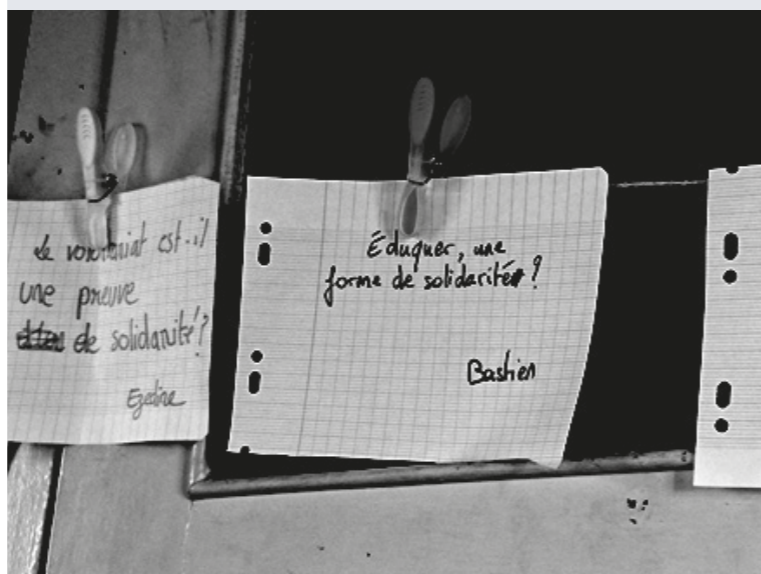 Le volontariat est-il
une preuve
de solidarité?
Ezedine
Éduquer, une
forme de solidarité ?
Bastien